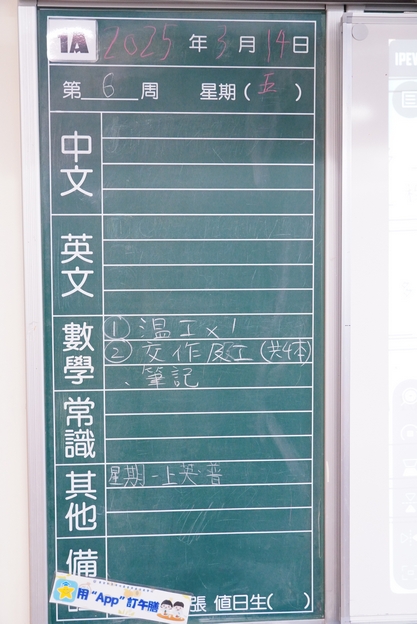 1A 2025 年 3 月 14 日
第 6 周 星期 ( 五 )
中文
英文
數學
① 溫工 x 1
② 交作及工 (共4本)
、筆記
常識
其他
星期一上英、普
備
用 "App" 訂午膳
張 值日生( )
IPEV